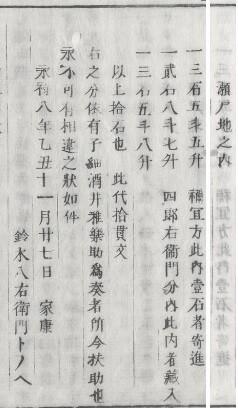 瀬戸地之内
一三石五斗五升　禰宜方此內壹石者寄進
一貳石八斗七升　四郎右衞門分內此內者藏入
一三石五斗八升
以上拾石也　此代拾貫文
右之分依有子細酒井雅樂助爲奏者所令扶助也
永不可有相違之狀如件
永祿八年乙丑十一月廿七日　家康
鈴木八右衞門トノヘ